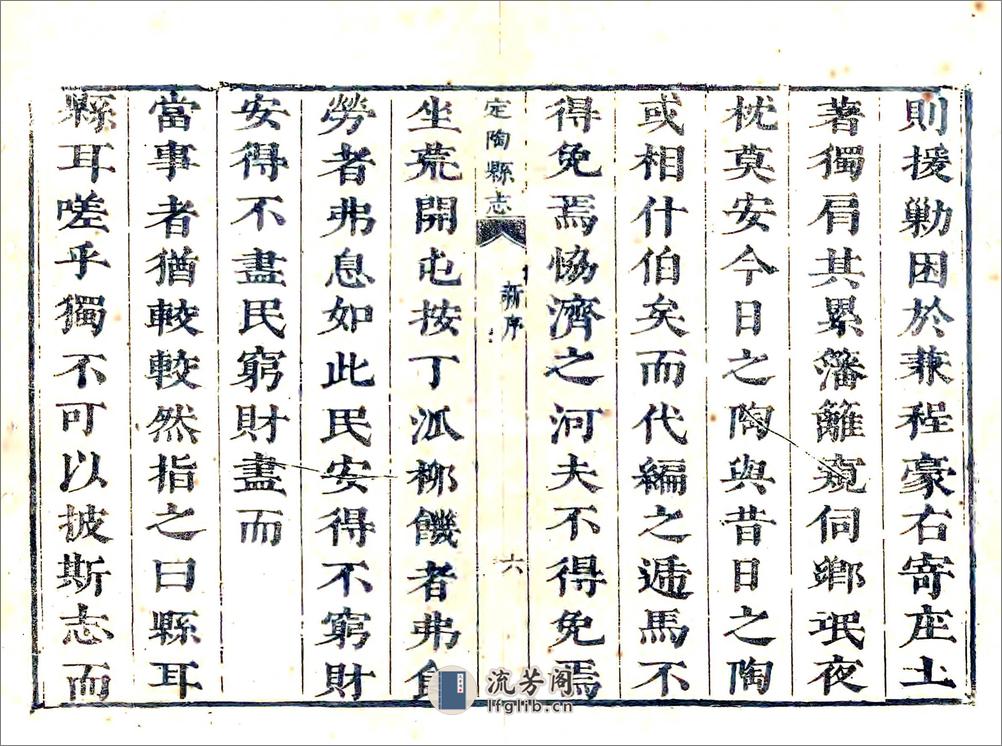 則援勦困於兼程豪右寄庄土
著獨肩其累藩籬窺伺鄉氓夜
枕莫安今日之陶與昔日之陶
或相什伯矣而代編之遞馬不
得免焉恊濟之河夫不得免焉
定陶縣志 新序 六
坐荒開屯按丁派柳饑者弗食
勞者弗息如此民安得不窮財
安得不盡民窮財盡而
當事者猶較較然指之曰縣耳
縣耳嗟乎獨不可以披斯志而
流芳阁
lfglib.cn